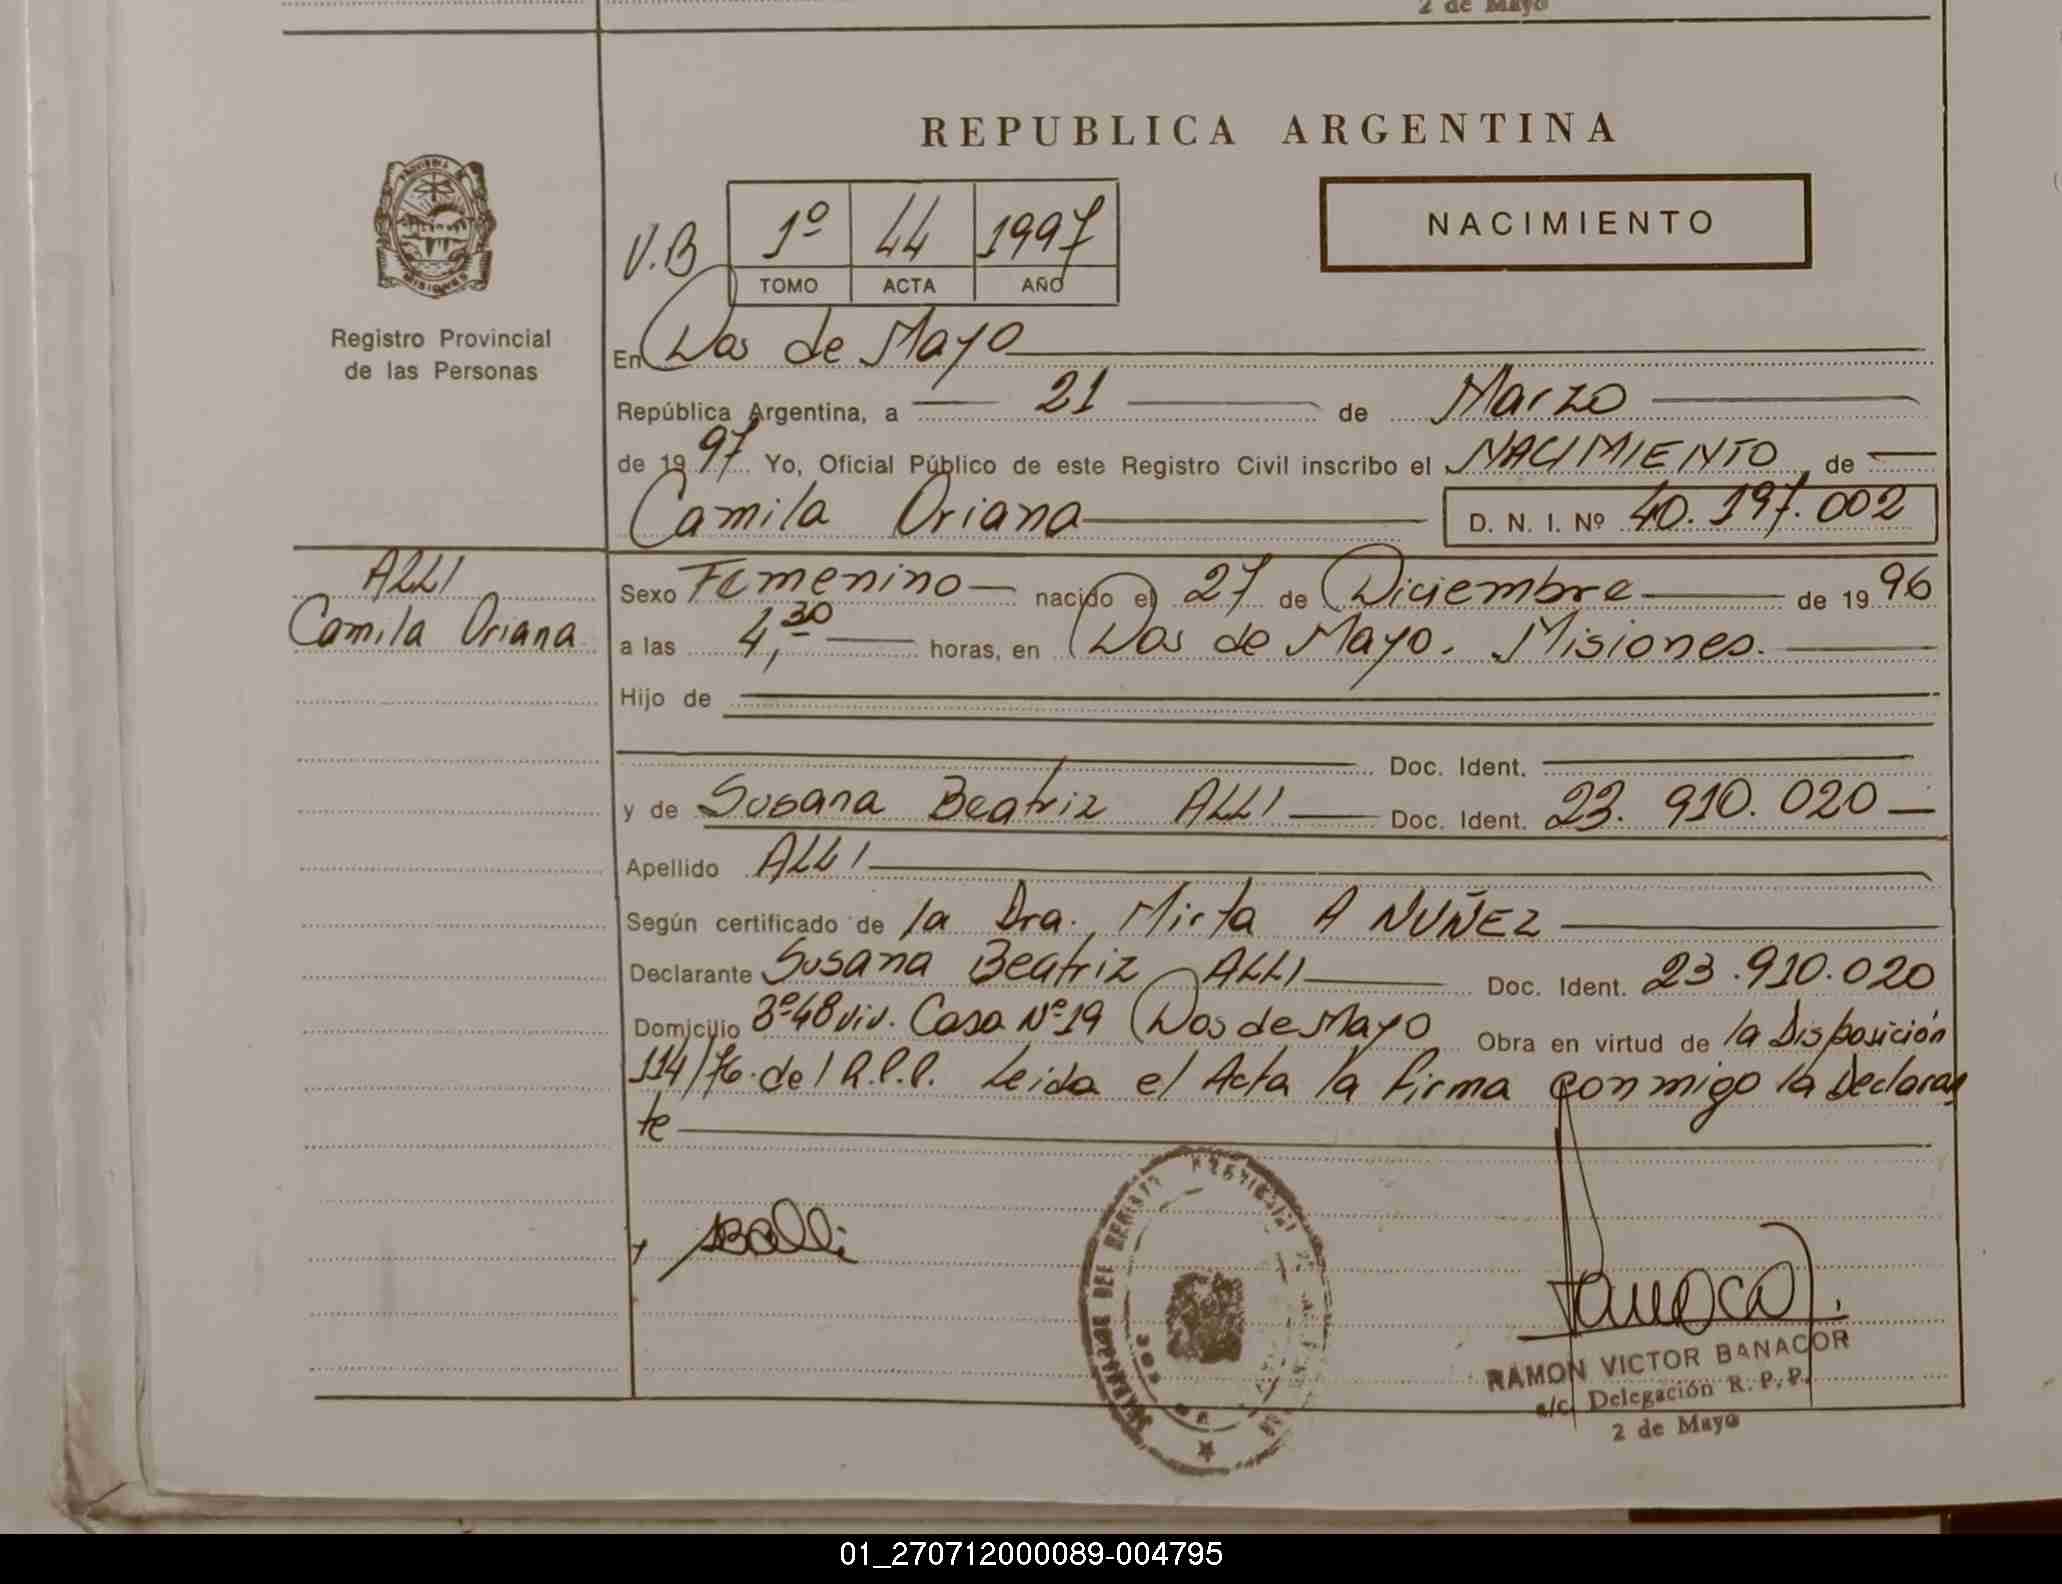 2 de Mayo
REPUBLICA ARGENTINA
PROVINCIA DE
MISIONES
Registro Provincial
de las Personas
V.B
1º 44 1997
TOMO ACTA AÑO
NACIMIENTO
En Dos de Mayo
República Argentina, a 21 de Marzo
de 1997 Yo, Oficial Público de este Registro Civil inscribo el NACIMIENTO de
Camila Oriana D. N. I. Nº 40.197.002
ALLI
Camila Oriana
Sexo Femenino nacido el 27 de Diciembre de 1996
a las 4,30 horas, en Dos de Mayo. Misiones.
Hijo de
Doc. Ident.
y de Susana Beatriz ALLI Doc. Ident. 23.910.020
Apellido ALLI
Según certificado de la Dra. Mirta A NUÑEZ
Declarante Susana Beatriz ALLI Doc. Ident. 23.910.020
Domicilio Bº48 viv. Casa Nº19 Dos de Mayo Obra en virtud de la Disposición
114/76. del R.P.P. Leida el Acta la firma conmigo la Declaran
te
SBAlli
RAMON VICTOR BANACOR
a/c. Delegación R. P. P.
2 de Mayo
01_270712000089-004795